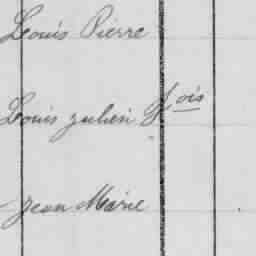 Louis Pierre
Louis Julien Fois
Jean Marie